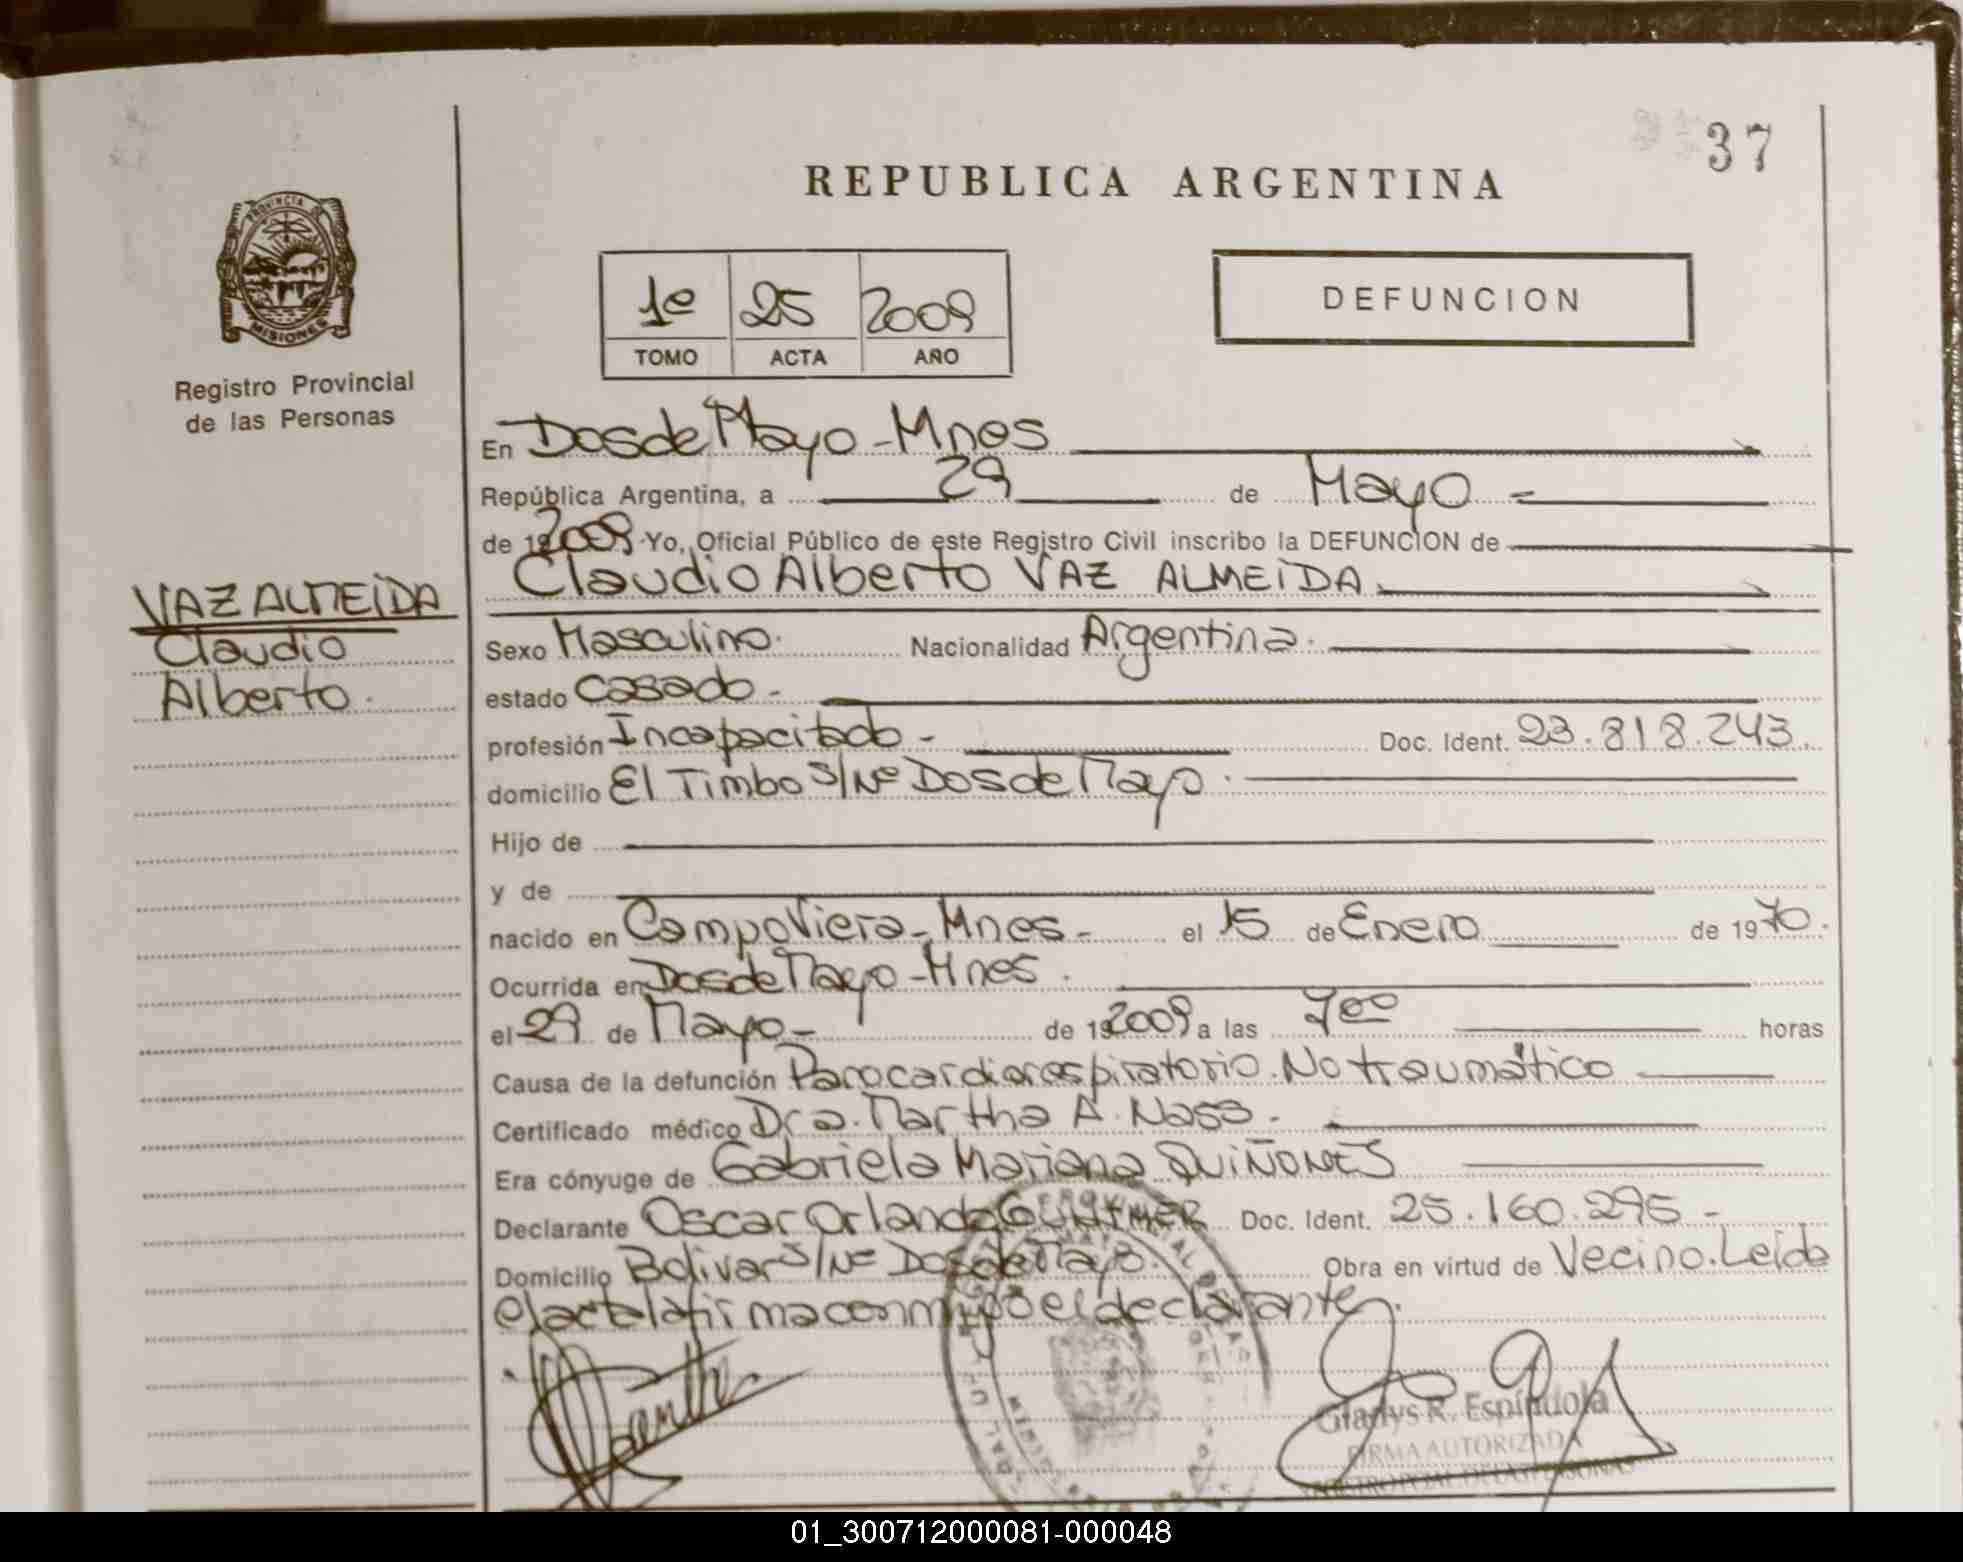 37
REPUBLICA ARGENTINA
PROVINCIA DE
MISIONES
Registro Provincial
de las Personas
1e 25 2009
TOMO ACTA AÑO
DEFUNCION
En Dos de Mayo - Mnes
República Argentina, a 29 de Mayo
de 19 2009 Yo, Oficial Público de este Registro Civil inscribo la DEFUNCION de
Claudio Alberto VAZ ALMEIDA
VAZ ALMEIDA
Claudio
Alberto.
Sexo Masculino. Nacionalidad Argentina.
estado Casado -
profesión Incapacitado - Doc. Ident. 23.818.243.
domicilio El Timbo S/Nº Dos de Mayo.
Hijo de
y de
nacido en Campo Viera - Mnes - el 15 de Enero de 1970.
Ocurrida en Dos de Mayo - Mnes.
el 29 de Mayo - de 19 2009 a las 7 00 horas
Causa de la defunción Parocardiorespiratorio. No traumático
Certificado médico Dra. Martha A. Nass.
Era cónyuge de Gabriela Mariana QUIÑONES
Declarante Oscar Orlando Doc. Ident. 25.160.295 -
Domicilio Bolivar S/Nº Dos de Mayo. Obra en virtud de Vecino. Leida
el acta la firma conmigo el declarante.
Gladys R. Espíndola
FIRMA AUTORIZADA
01_300712000081-000048